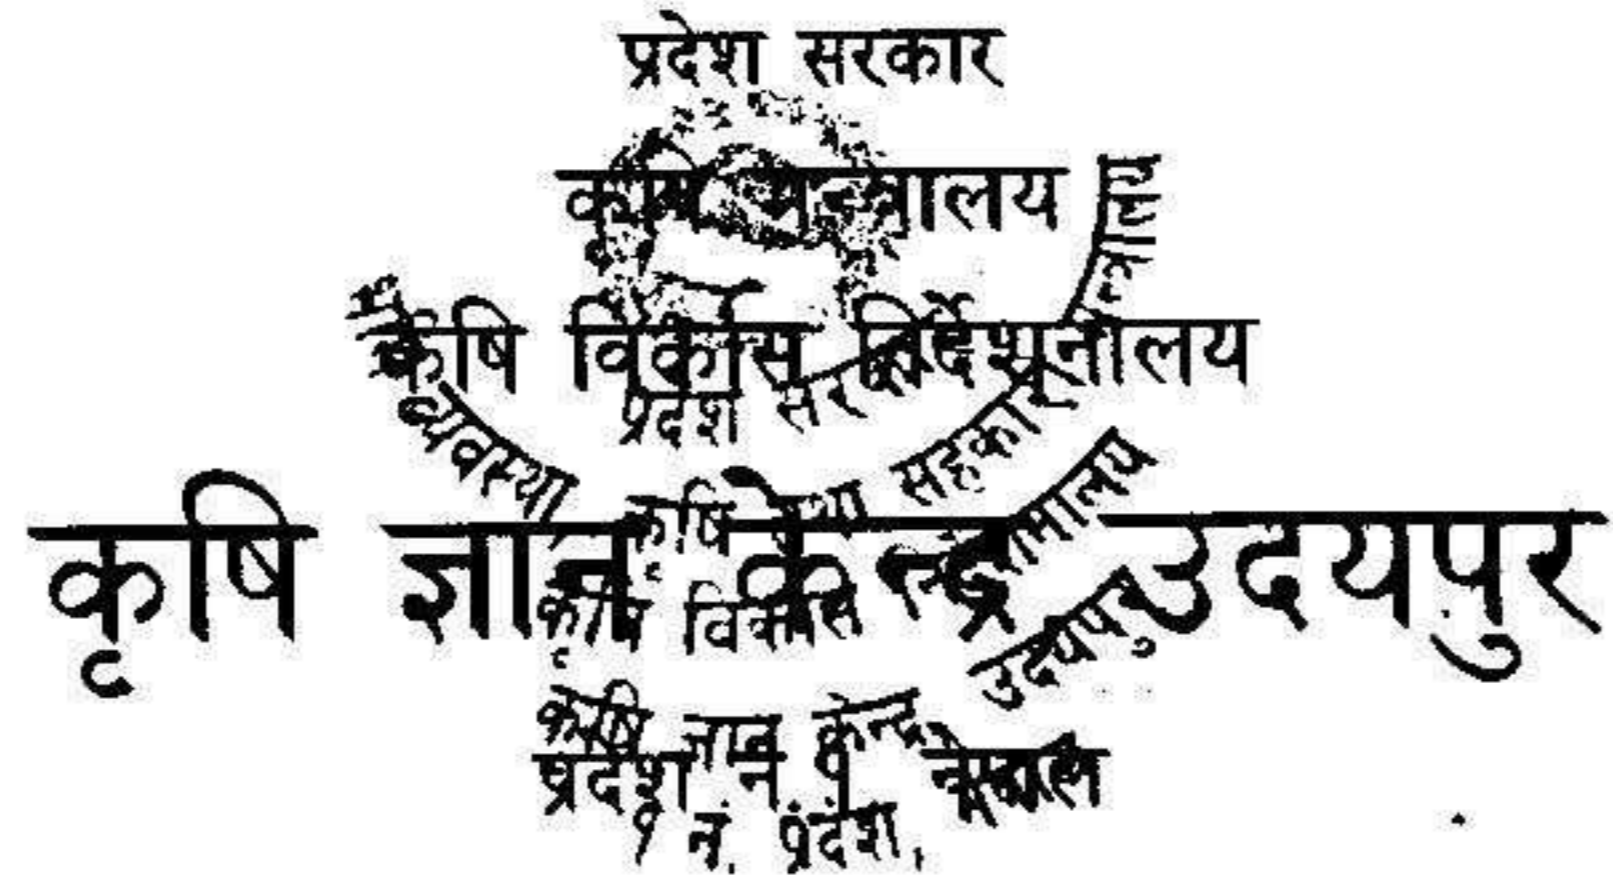 प्रदेश सरकार
कृषि मन्त्रालय
कृषि विकास निर्देशनालय
कृषि ज्ञान केन्द्र उदयपुर
प्रदेश नं १ नेपाल
व्यवस्था
सहकारी मन्त्रालय
प्रदेश सरकार
कृषि तथा
कृषि विकास
कृषि ज्ञान केन्द्र, उदयपुर
१ नं. प्रदेश,